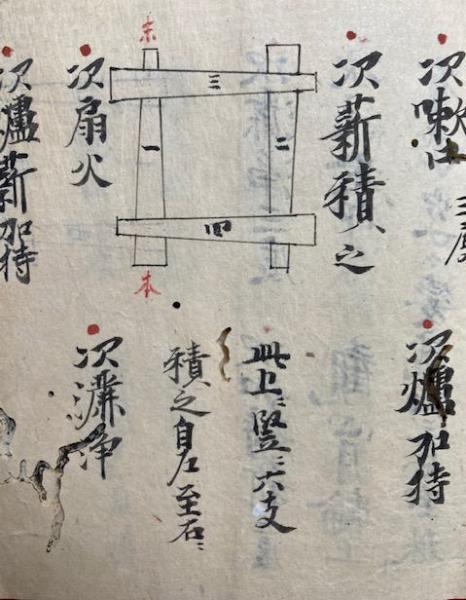 次嗽口 三度
次爐加持
次薪積之
末
三
二
一
四
本
此上ニ竪ニ六支
積之自左至右ニ
次扇火
次灑浄
次爐薪加持